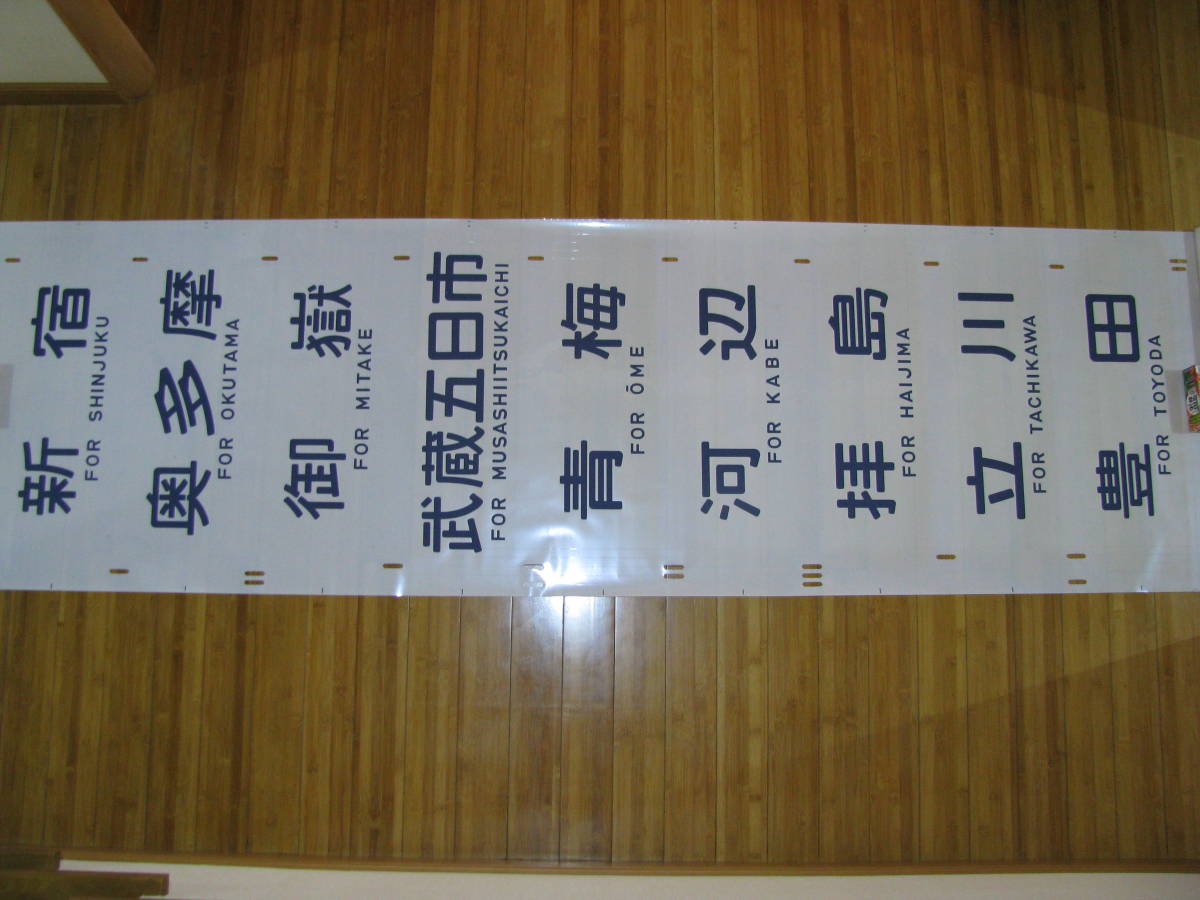 新宿
FOR SHINJUKU
奥多摩
FOR OKUTAMA
御嶽
FOR MITAKE
武蔵五日市
FOR MUSASHIITSUKAICHI
青梅
FOR ŌME
河辺
FOR KABE
拝島
FOR HAIJIMA
立川
FOR TACHIKAWA
豊田
FOR TOYODA